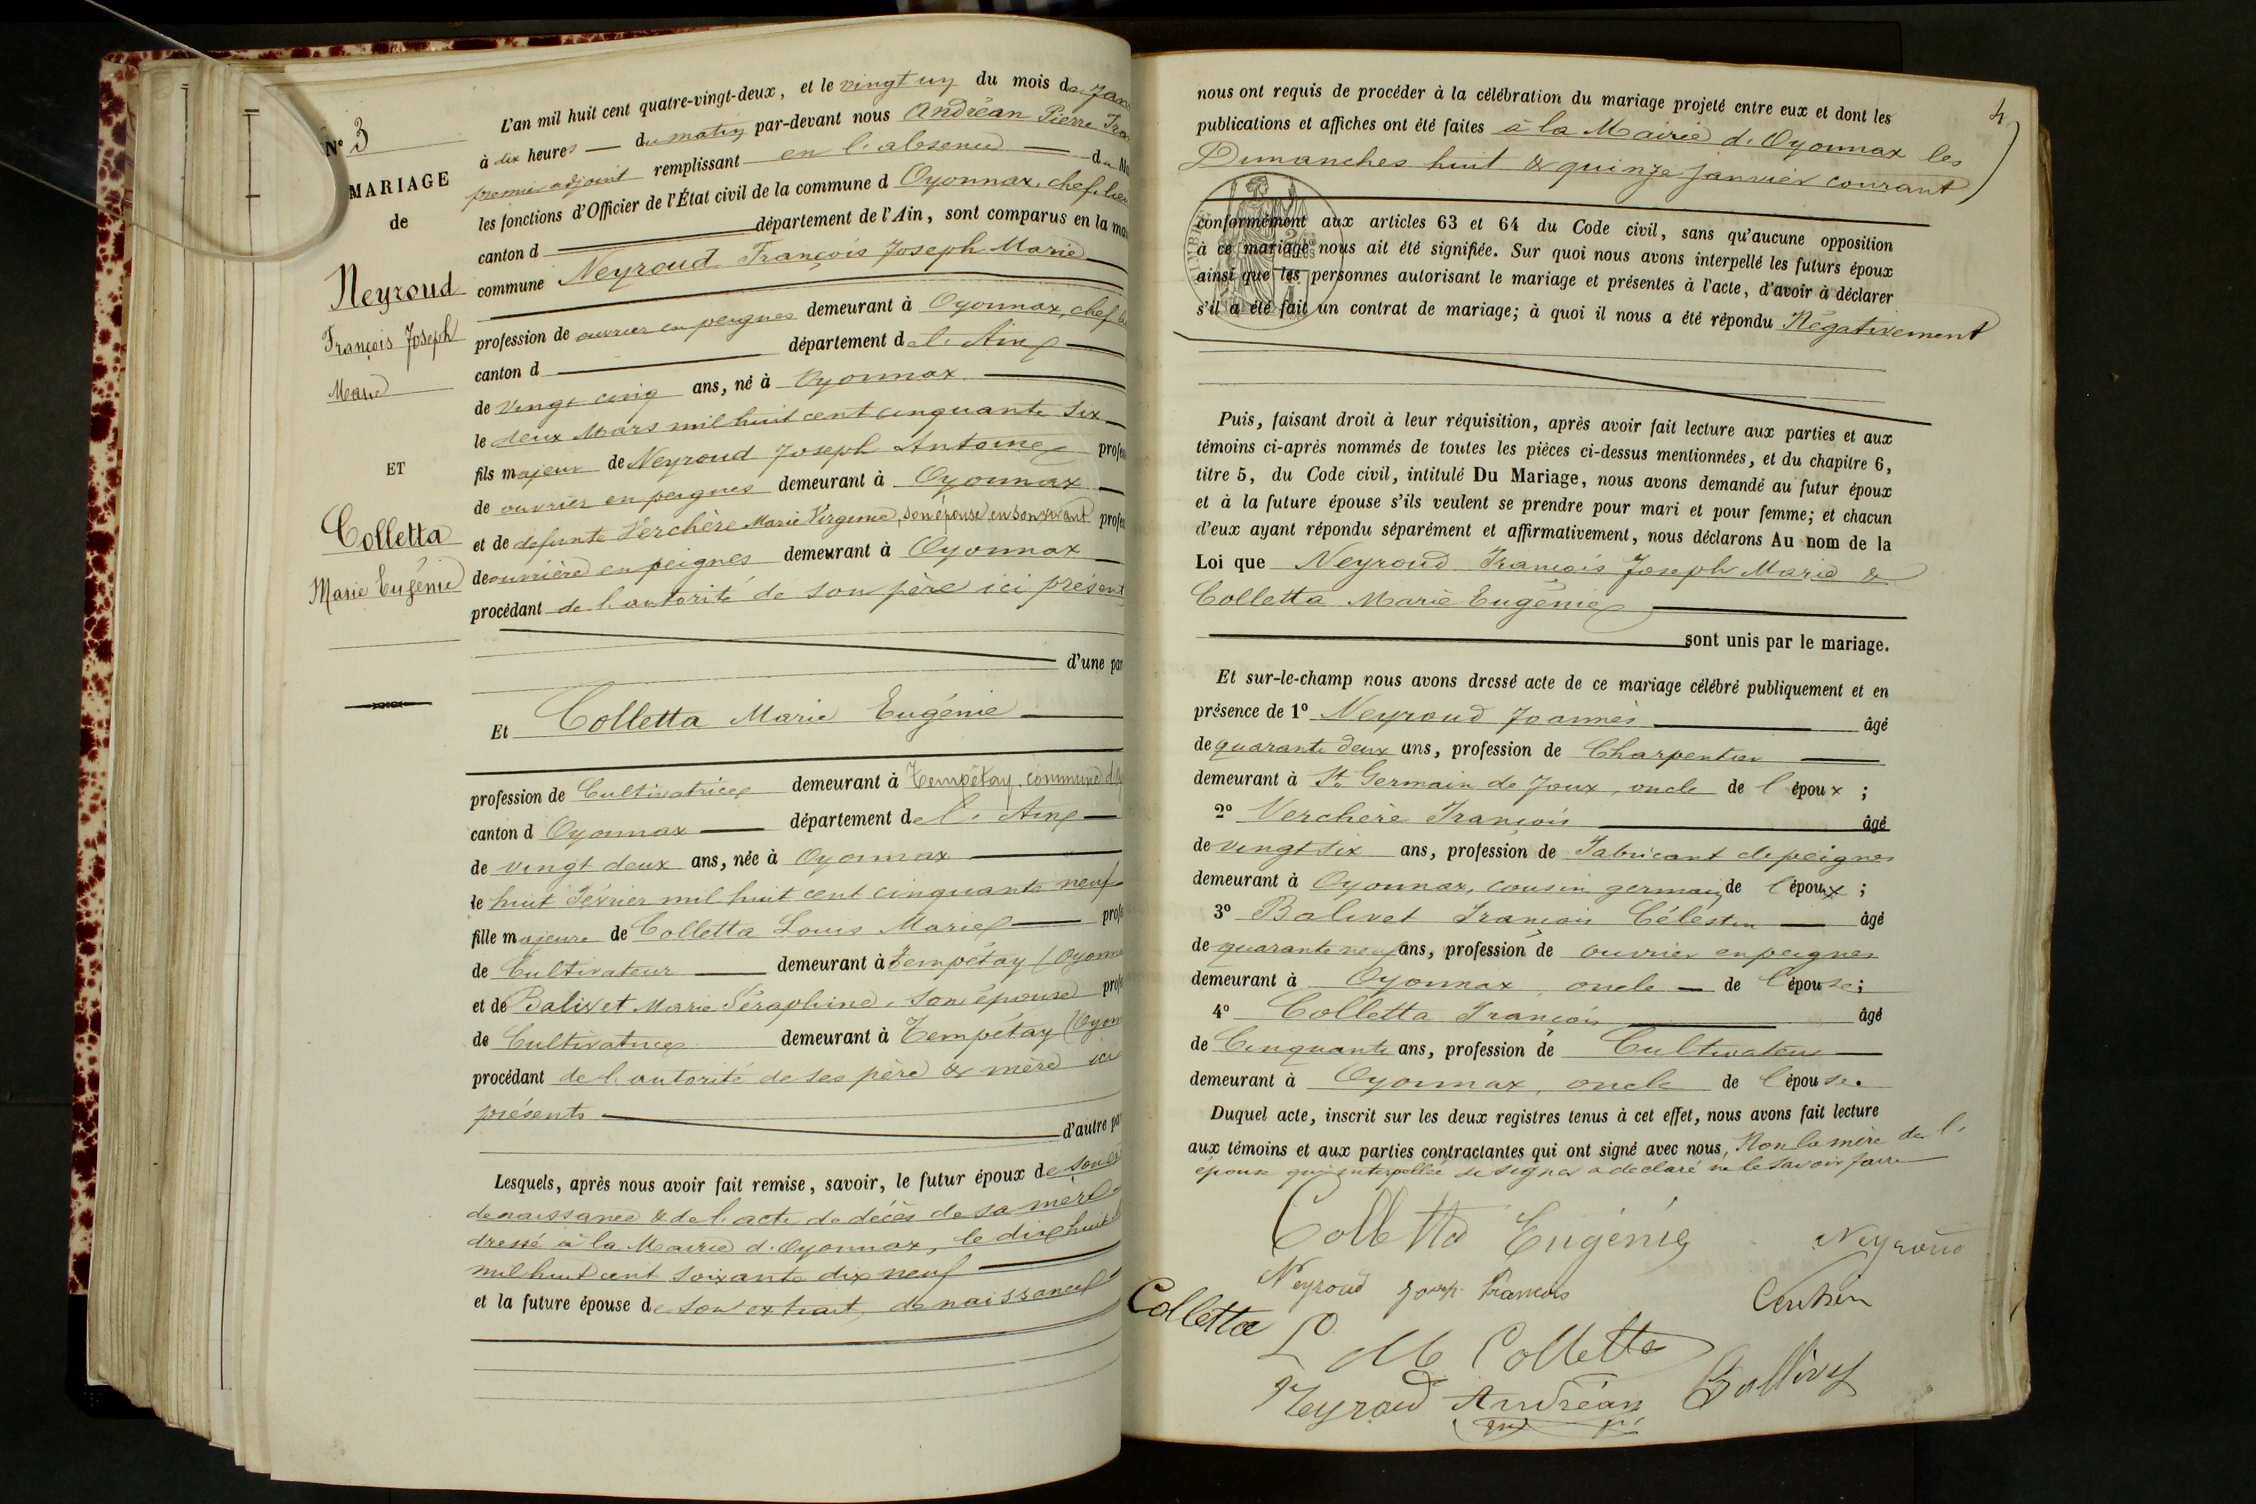 N° 3
MARIAGE
de
Neyroud
François Joseph
Marie
ET
Colletta
Marie Eugénie
L'an mil huit cent quatre-vingt-deux, et le vingt un du mois de Jan
à dix heures du matin par-devant nous Andréan Pierre
premier adjoint remplissant en l'absence du
les fonctions d'Officier de l'État civil de la commune d Oyonnax, chef-lieu
canton d département de l'Ain, sont comparus en la
commune Neyroud François Joseph Marie
profession de ouvrier en peignes demeurant à Oyonnax, chef
canton d département de l'Ain
de vingt cinq ans, né à Oyonnax
le deux Mars mil huit cent cinquante six
fils majeur de Neyroud Joseph Antoine
de ouvrier en peignes demeurant à Oyonnax
et de defunte Verchère Marie Virginie, son épouse en son vivant
de ouvrière en peignes demeurant à Oyonnax
procédant de l'autorité de son père ici présent
d'une par
Et Colletta Marie Eugénie
profession de Cultivatrice demeurant à Tempétay, commune d'
canton d Oyonnax département de l'Ain
de vingt deux ans, née à Oyonnax
le huit Février mil huit cent cinquante neuf
fille majeure de Colletta Louis Marie
de Cultivateur demeurant à Tempétay (Oyonna
et de Balivet Marie Séraphine, son épouse
de Cultivatrice demeurant à Tempétay (Oyon
procédant de l'autorité de ses père & mère ici
présents
d'autre par
Lesquels, après nous avoir fait remise, savoir, le futur époux de son
de naissance & de l'acte de décès de sa mère
dressé à la Mairie d'Oyonnax, le dix huit
mil huit cent soixante dix neuf
et la future épouse de son extrait de naissance
4
nous ont requis de procéder à la célébration du mariage projeté entre eux et dont les
publications et affiches ont été faites à la Mairie d'Oyonnax les
Dimanches huit & quinze janvier courant
conformément aux articles 63 et 64 du Code civil, sans qu'aucune opposition
à ce mariage nous ait été signifiée. Sur quoi nous avons interpellé les futurs époux
ainsi que les personnes autorisant le mariage et présentes à l'acte, d'avoir à déclarer
s'il a été fait un contrat de mariage; à quoi il nous a été répondu Négativement
Puis, faisant droit à leur réquisition, après avoir fait lecture aux parties et aux
témoins ci-après nommés de toutes les pièces ci-dessus mentionnées, et du chapitre 6,
titre 5, du Code civil, intitulé Du Mariage, nous avons demandé au futur époux
et à la future épouse s'ils veulent se prendre pour mari et pour femme; et chacun
d'eux ayant répondu séparément et affirmativement, nous déclarons Au nom de la
Loi que Neyroud François Joseph Marie &
Colletta Marie Eugénie
sont unis par le mariage.
Et sur-le-champ nous avons dressé acte de ce mariage célébré publiquement et en
présence de 1° Neyroud Joannès âgé
de quarante deux ans, profession de Charpentier
demeurant à St Germain de Joux, oncle de l'époux ;
2° Verchère François âgé
de vingt six ans, profession de Fabricant de peignes
demeurant à Oyonnax, cousin germain de l'époux ;
3° Balivet François Célestin âgé
de quarante neuf ans, profession de ouvrier en peignes
demeurant à Oyonnax, oncle de l'épouse;
4° Colletta François âgé
de Cinquante ans, profession de Cultivateur
demeurant à Oyonnax, oncle de l'épouse.
Duquel acte, inscrit sur les deux registres tenus à cet effet, nous avons fait lecture
aux témoins et aux parties contractantes qui ont signé avec nous, Non la mère de l'
épouse qui interpellée de signer a déclaré ne le savoir faire
Colletta Eugénie Neyroud
Neyroud Joseph François
Colletta L M Colletta
Neyroud Andréan Ballivet